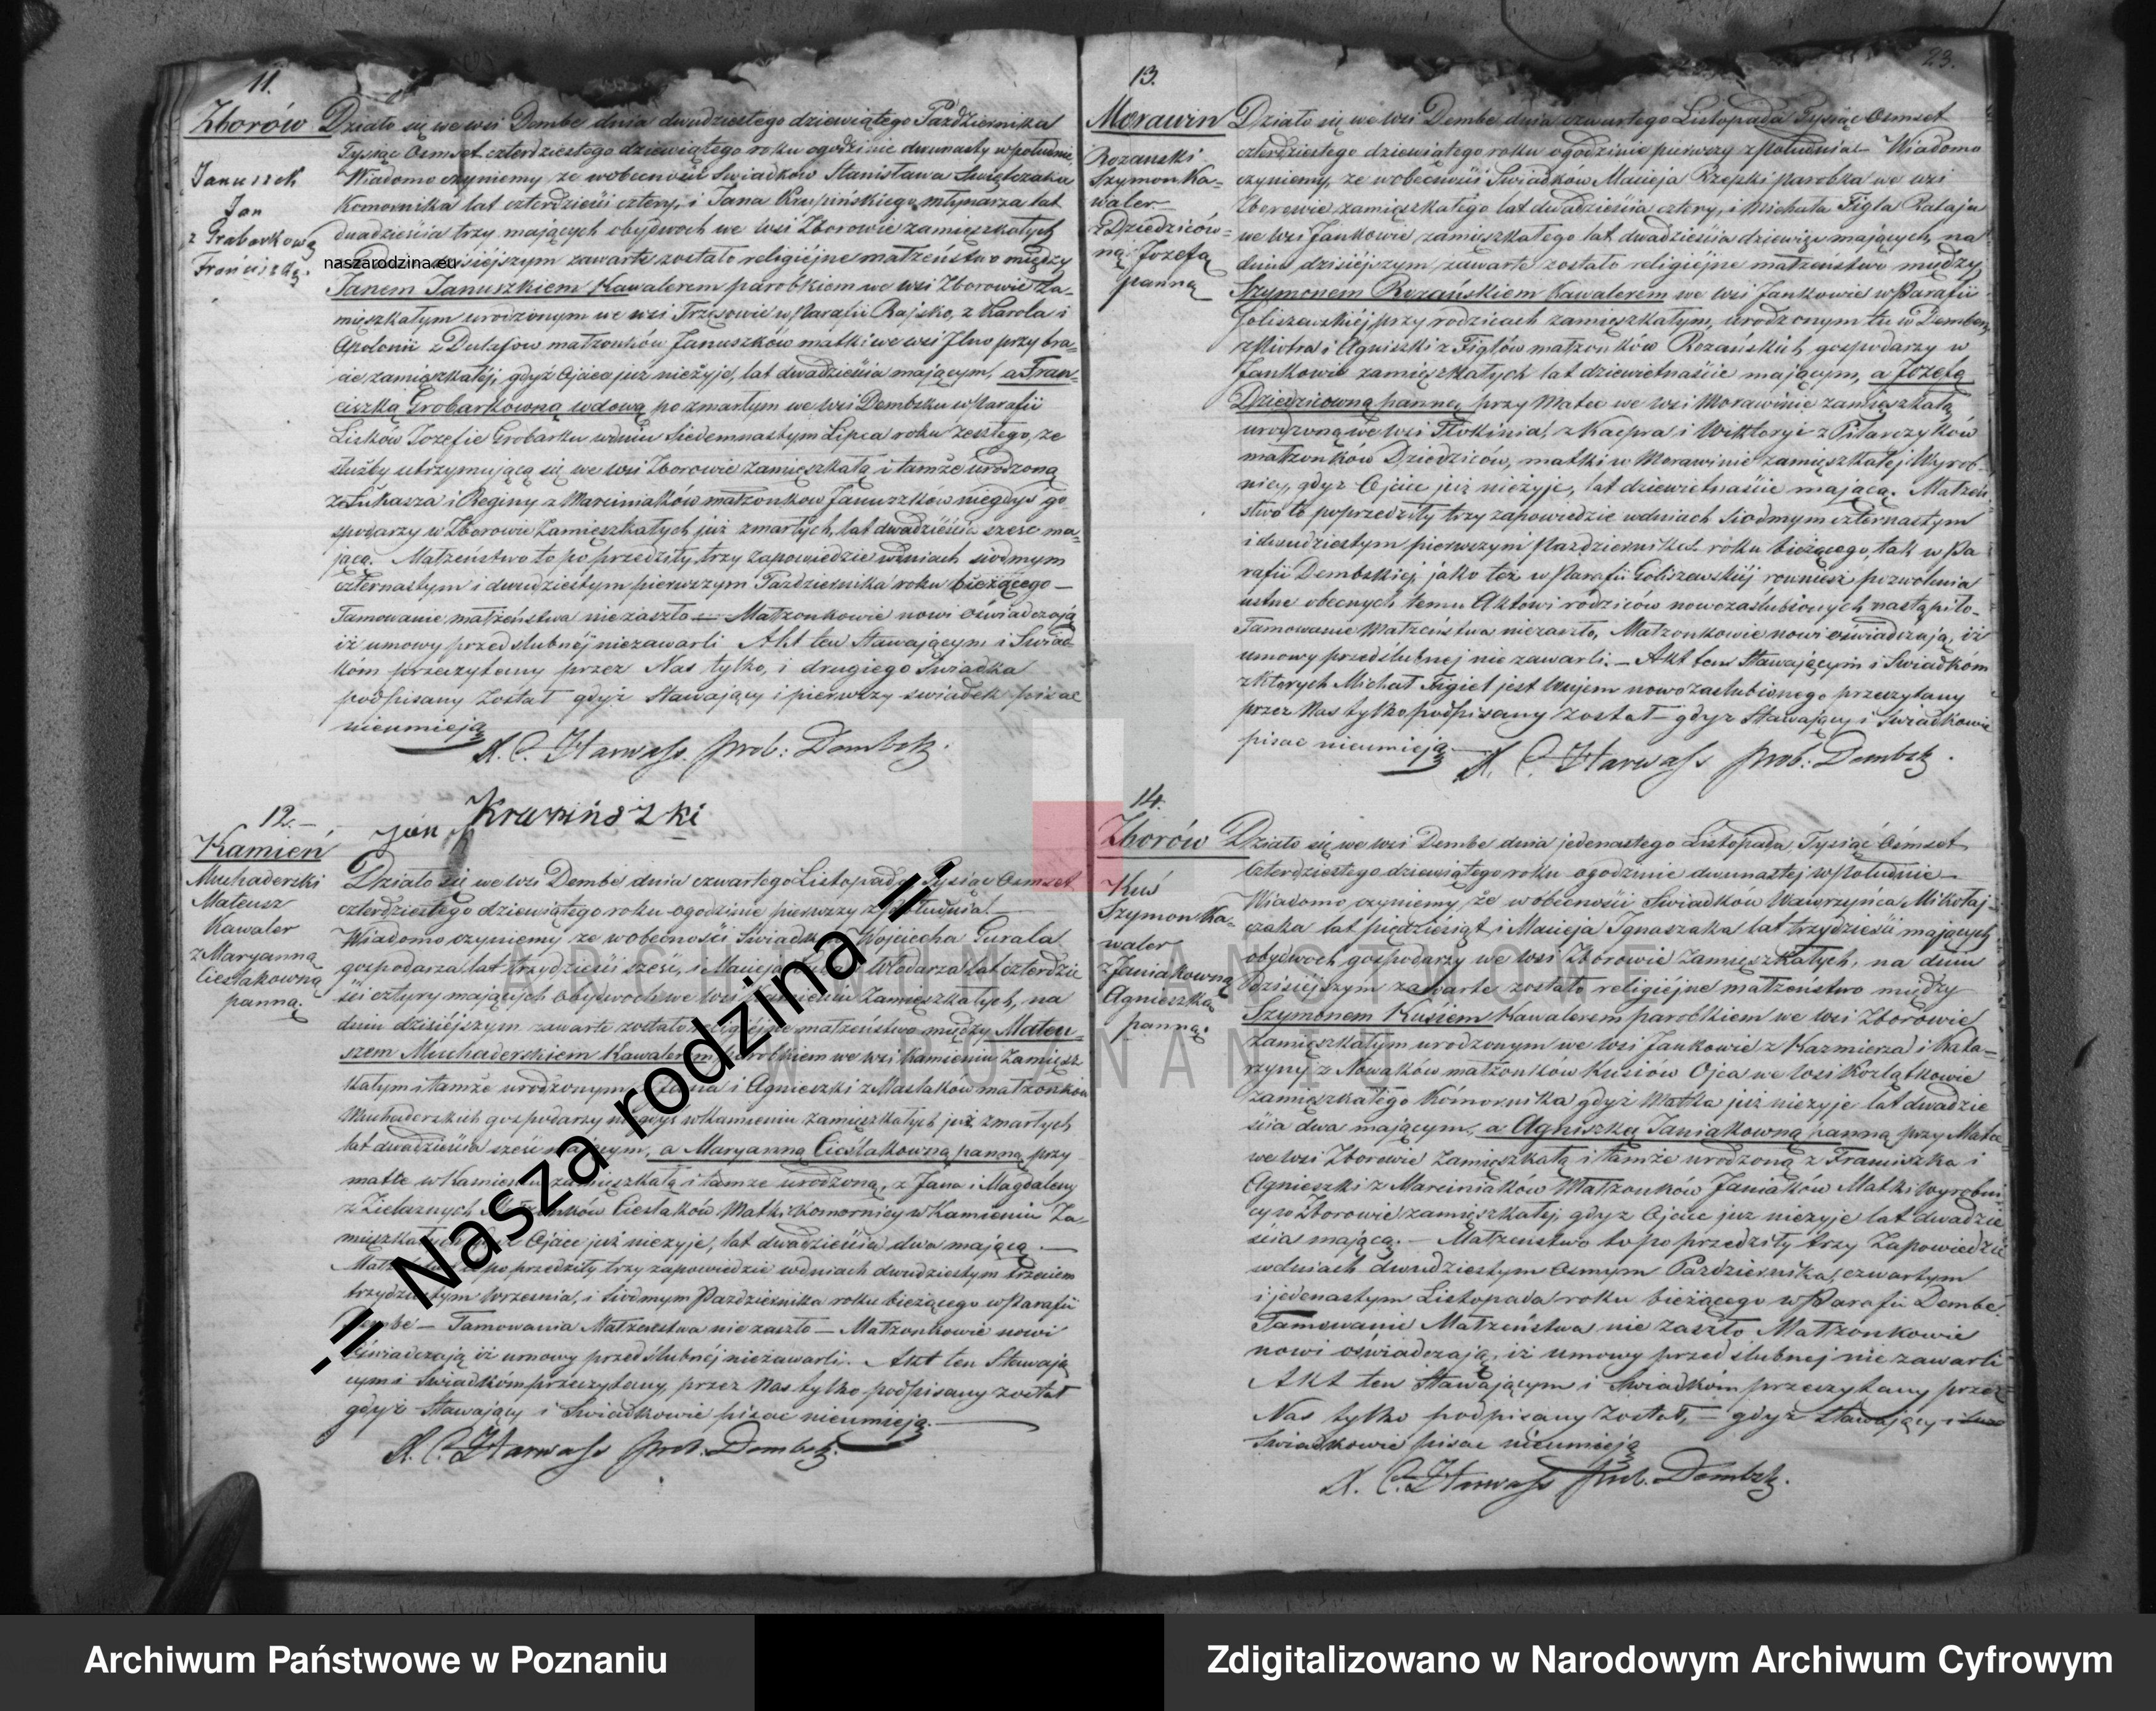 11.
Zborów
Januszek
Jan
z Grabarkową
Franciszką.
Działo się we wsi Dembe dnia dwudziestego dziewiątego Października
Tysiąc Osmset czterdziestego dziewiątego roku o godzinie dwunasty w południe,
Wiadomo czyniemy że w obecności Swiadków Stanisława
Komornika lat czterdzieści cztery, i Jana Krupińskiego młynarza lat
dwadzieścia trzy mających obydwoch we wsi Zborowie zamięszkałych
dzisiejszym zawarte zostało religiejne małżeństwo między
naszarodzina.eu
Janem Januszkiem Kawalerem parobkiem we wsi Zborowie Za-
mięszkałym urodzonym we wsi Trzęsowie w Parafii Rajsko, z Karola i
Apolonii z Dulasow małżonków Januszków matki we wsi przy bra-
cie zamięszkałej, gdyż Ojciec już nieżyje, lat dwadzieścia mającym, a Fran-
ciszką Grobarkowną wdową po zmarłym we wsi Dembsku w Parafii
Lisków Jozefie Grobarku w dniu Siedemnastym Lipca roku zeszłego, ze
służby utrzymującą się, we wsi Zborowie zamięszkałą i tamże urodzoną
z Łukasza i Reginy z Marciniaków małżonkow Januszków niegdyś go
spodarzy w Zborowie Zamięszkałych już zmarłych, lat dwadzieścia sześć ma-
jącą. Małżeństwo to poprzedziły trzy zapowiedzie w dniach siodmym
czternastym i dwudziestym pierwszym Października roku bieżącego —
Tamowanie małżeństwa nie zaszło — Małżonkowie nowi oświadczają
iż umowy przedślubnéj niezawarli Akt ten Stawającym i Swiad-
kóm przeczytany przez Nas tylko, i drugiego Swiadka
podpisany został gdyż Stawający i pierwszy swiadek pisac
nieumieją
X. C. Harwass. prob: Dembsk.
Jan Krurzińszki
12.
Kamień
Muchaderski
Mateusz
Kawaler
z Maryanną
Cieślakowną
panną.
Działo się we wsi Dembe dnia czwartego Listopada Tysiąc Osmset
czterdziestego dziewiątego roku o godzinie pierwszy z południa.
Wiadomo czyniemy że w obecności Swiadków Wojciecha Gurala
gospodarza lat trzydzieści sześć, i Macieja Włodarza lat czterdzie
ści cztyry mających obydwoch we wsi Kamieniu Zamięszkałych, na
dniu dzisiéjszym zawarte zostało religiejne małżeństwo między Mateu-
szem Muchaderskiem Kawalerem parobkiem we wsi Kamieniu Zamięsz
kałym i tamże urodzonym z Jana i Agnieszki z Maslaków małżonków
Muchaderskich gospodarzy niegdyś w Kamieniu zamięszkałych już zmarłych
lat dwadzieścia sześć mającym, a Maryanną Cieślakowną panną przy
matce w Kamieniu zamięszkałą i tamże urodzoną, z Jana i Magdaleny
z Zielaznych Małżonków Cieslaków Matki Komornicy w Kamieniu Za-
mięszkałych Ojciec już nieżyje, lat dwadzieścia dwa mającą. —
Małżeństwo to poprzedziły trzy zapowiedzie w dniach dwudziestym trzeciem
trzydziestym Września, i Siodmym Października roku bieżącego w Parafii
Dembe — Tamowania Małżenstwa nie zaszło — Małżonkowie nowi
Oświadczają iż umowy przedślubnéj niezawarli. Akt ten Stawają
cym i Swiadkóm przeczytany, przez Nas tylko podpisany został
gdyż Stawający i Swiadkowie pisac nieumieją. —
X. C. Harwass prob. Dembsk.
.:i Nasza rodzina i:.
23.
13.
Morawin
Rozanski
Szymon Ka-
waler
z Dziedziców-
ną Jozefą
panną
Działo się we wsi Dembe dnia czwartego Listopada Tysiąc Osmset
czterdziestego dziewiątego roku o godzinie pierwszy z południa — Wiadomo
czyniemy, że w obecności Swiadkow Macieja Rzepki parobka we wsi
Zborowie zamięszkałego lat dwadzieścia cztery, i Michała Figla Rataja
we wsi Jankowie zamięszkałego lat dwadzieścia dziewięć mających, na
dniu dzisiéjszym zawarte zostało religiéjne małżeństwo między
Szymonem Rozańskiem Kawalerem we wsi Jankowie w Parafii
Goliszewskiéj przy rodzicach zamięszkałym, urodzonym tu w Dembem,
z Piotra i Agniszki z Figlów małżonków Rozańskich gospodarzy w
Jankowie zamięszkałych lat dziewietnaście mającym, a Józefą
Dziedzicowną panną, przy Matce we wsi Morawinie zamięszkałą,
urodzoną we wsi Tłokinia, z Kacpra i Wiktoryi z Pilarczyków
małżonków Dziedziców, matki w Morawinie zamięszkałej Wyrob-
nicy, gdyż Ojciec już nieżyje, lat dziewietnaście mającą. Małżeń-
stwo to poprzedziły trzy zapowiedzie w dniach Siodmym czternastym
i dwudziestym pierwszym Października roku bieżącego, tak w Pa
rafii Dembskiej jako też w Parafii Goliszewskiéj rownież pozwolenia
ustne obecnych temu Aktowi rodziców nowozaślubionych nastąpiło —
Tamowanie Małżeństwa niezaszło, Małżonkowie nowi oświadczają, iż
umowy przedślubnej nie zawarli. — Akt ten Stawającym i Swiadkóm
z ktorych Michał Figiel jest Wujem nowozaslubionego przeczytany
przez Nas tylko podpisany został — gdyż Stawający i Swiadkowie
pisac nieumieją —
X. C. Harwass prob: Dembsk.
14.
Zborów
Kuś
Szymon Ka-
waler
z Janiakowną
Agnieszką
panną.
Działo się we wsi Dembe dnia jedenastego Listopada Tysiąc Osmset
Czterdziestego dziewiątego roku o godzinie dwunastej w południe —
Wiadomo czyniemy że w obecności Swiadków Wawrzyńca Mikołaj-
czaka lat pięćdziesiąt i Macieja Ignaszaka lat trzydzieści mających
obydwoch gospodarzy we wsi Zborowie Zamięszkałych, na dniu
Dzisiéjszym zawarte zostało religiéjne małżeństwo między
Szymonem Kusiem Kawalerem parobkiem we wsi Zborowie
Zamięszkałym urodzonym we wsi Jankowie z Kazmierza i Kata-
rzyny z Nowaków małżonków Kusiów Ojca we wsi Kozłątkowie
zamięszkałego Kómornika gdyż Matka już nieżyje lat dwadzie
ścia dwa mającym, a Agniszką Janiakowną panną przy Matce
we wsi Zborowie Zamięszkałą i tamże urodzoną z Franciszka i
Agnieszki z Marciniaków Małżonków Janiaków Matki Wyrobni
cy w Zborowie zamięszkałej, gdyż Ojciec już nieżyje lat dwadzie
ścia mającą. — Małżeństwo to poprzedziły trzy Zapowiedzie
w dniach dwudziestym Osmym Października, czwartym
i jedenastym Listopada roku bieżącego w Parafii Dembe
Tamowanie Małżeństwa nie Zaszło Małżonkowie
nowi oświadczają, iż umowy przedslubnej nie zawarli
Akt ten Stawającym i Swiadkóm przeczytany przez
Nas tylko podpisany Został, — gdyż Stawający i
Swiadkowie pisac nieumieją
X. C. Harwass Prob. Dembsk.
ARCHIWUM PAŃSTWOWE
W POZNANIU
Archiwum Państwowe w Poznaniu
Zdigitalizowano w Narodowym Archiwum Cyfrowym